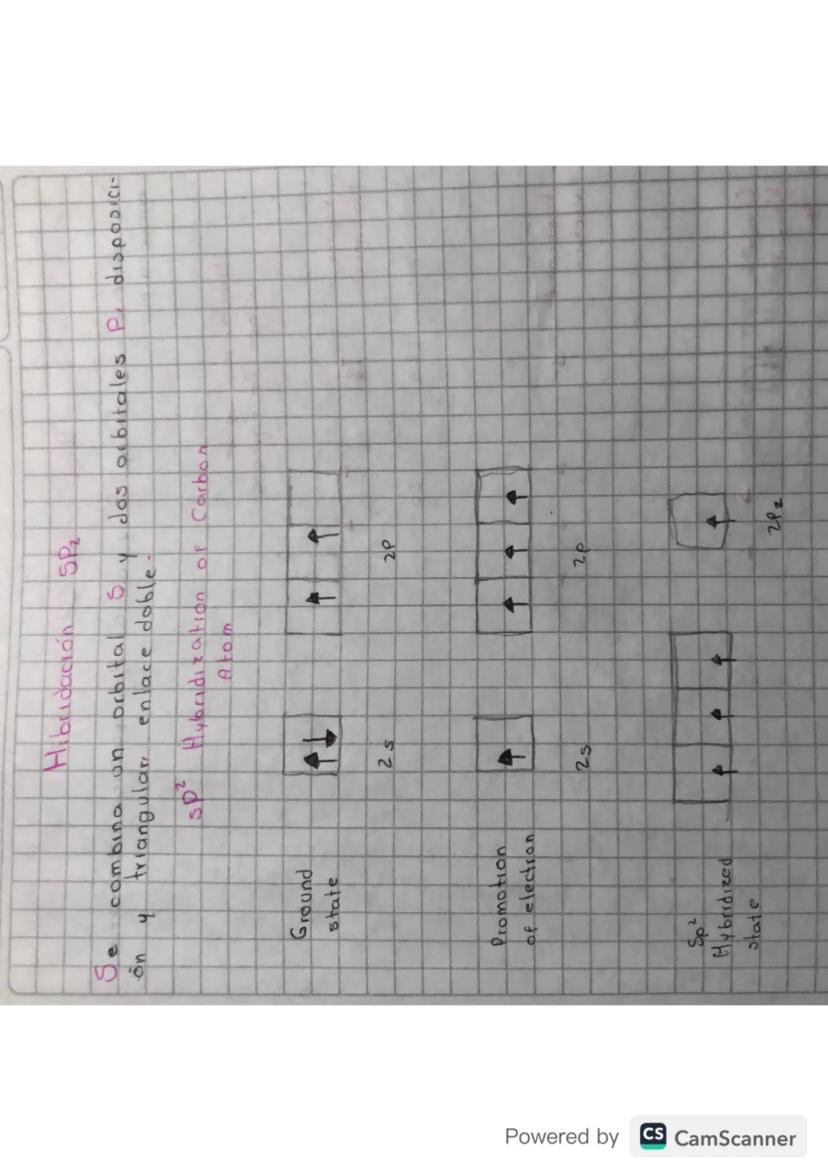 Hibridación SP₂
Se combina un orbital S y dos orbitales P, disposici-
ón y triangular, enlace doble.
SP² Hybridization of Carbon
Atom
Ground
state
2s
2P
Promotion
of electron
2s
2p
Sp²
Hybridized
state
2P₂
Powered by CS CamScanner